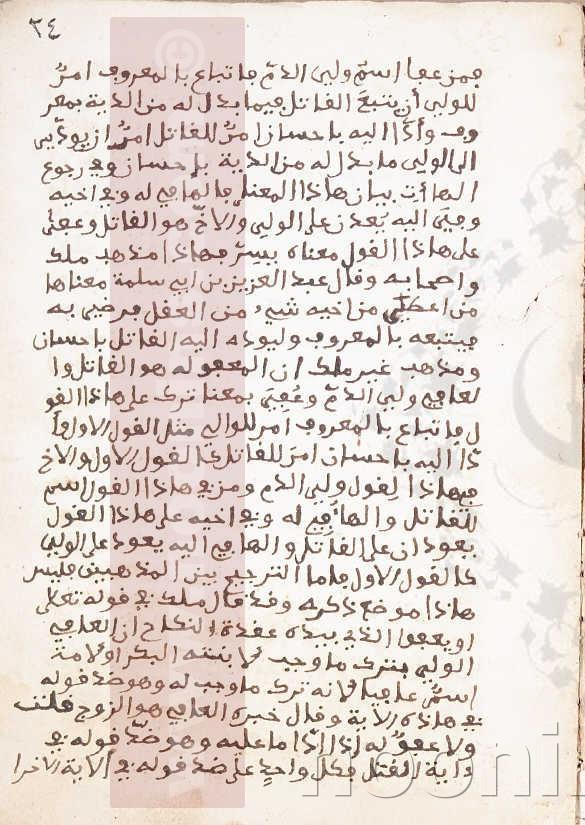 ٣٤
فمن عفا اسم ولي الدم فاتباع بالمعروف امر
للولي أن يتبع القاتل فيما بذل له من الدية بمعر
وف وأدا اليه باحسان امر للقاتل امر ان يودي
الى الولي ما بذل له من الدية باحسان وفي رجوع
الهاأت بيان هاذا المعنى فالها في له وفي اخيه
وفي اليه يعدن على الولي والاخ هو القاتل وعفي
على هاذا القول معناه يسر فهاذا مذهب ملك
واصحابه وقال عبد العزيز بن ابي سلمة معناها
من اعطي من اخيه شيء من العقل فرضي به
فيتبعه بالمعروف وليوده اليه القاتل باحسان
ومذهب غير ملك ان المعفو له هو القاتل وا
لعافي ولي الدم وعفي بمعنا ترك على هاذا القو
ل فاتباع بالمعروف امر للوالي مثل القول الاول وأ
دا اليه باحسان امر للقاتل كالقول الاول والاخ
في هاذا القول ولي الدم ومن في هاذا القول اسم
للقاتل والها في له وفي اخيه على هاذا القول
يعودان على القاتل والها في اليه يعود على الولي
كالقول الاول فاما الترجيح بين المذهبين فليس
هاذا موضع ذكره وقد قال ملك في قوله تعالى
او يعفوا الذي بيده عقدة النكاح ان العافي
الولي بترك ما وجب لابنته البكر او لامة
اسمي عافيا لانه ترك ما وجب له وهو ضد قوله
في هاذه الاية وقال غيره العافي هو الزوج قلت
ولا عفو له اذا ادا ما عليه وهو ضد قوله في
داية القتل فكل واحد على ضد قوله في الاية الاخرا
noonl